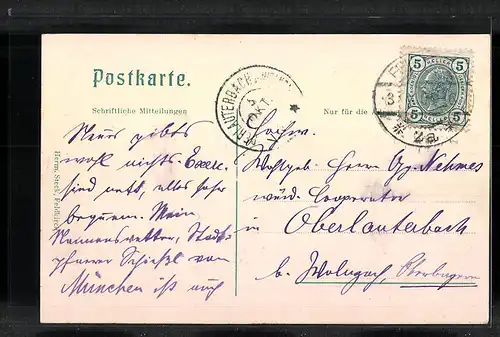 Postkarte.
Schriftliche Mitteilungen
Nur für die
5 HELLER 5
5 5
OKT.
Herm. Steck, Feldkirch
Neues gibts
wohl nichts. Exerc.
sind nett, alles sehr
bequem. Mein
Namensvetter, Stadt-
pfarrer Schiessl von
München ist auch
Hochw.
Wohlgeb. Herrn Gg. Nehmes
würd. Cooperator
in Oberlauterbach
b. Wolnzach, Oberbayern